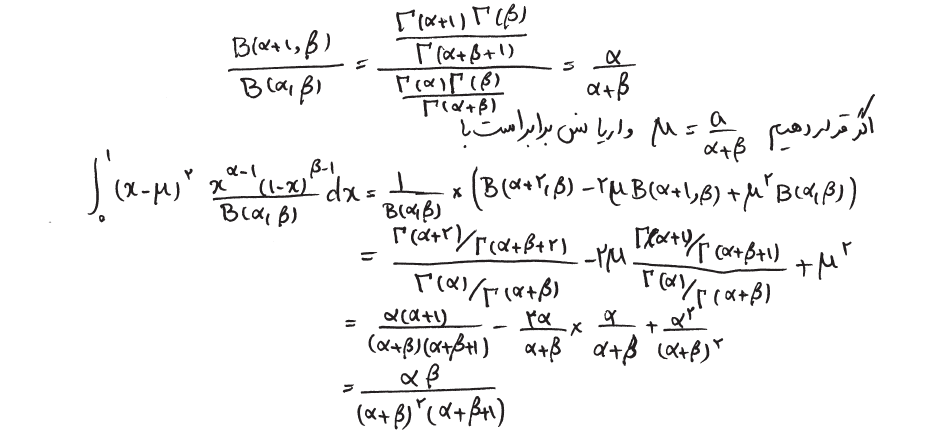 B(α+1, β) / B(α, β) = (Γ(α+1) Γ(β) / Γ(α+β+1)) / (Γ(α) Γ(β) / Γ(α+β)) = α / (α+β)
اگر قرار دهیم μ = a / (α+β) واریانس برابر است با
∫₀¹ (x-μ)^۲ x^(α-1) (1-x)^(β-1) / B(α, β) dx = 1 / B(α, β) × (B(α+۲, β) - ۲μ B(α+1, β) + μ^۲ B(α, β))
= (Γ(α+۲) / Γ(α+β+۲)) / (Γ(α) / Γ(α+β)) - ۲μ (Γ(α+1) / Γ(α+β+1)) / (Γ(α) / Γ(α+β)) + μ^۲
= α(α+1) / (α+β)(α+β+1) - ۲α / (α+β) × α / (α+β) + α^۲ / (α+β)^۲
= α β / (α+β)^۲ (α+β+1)